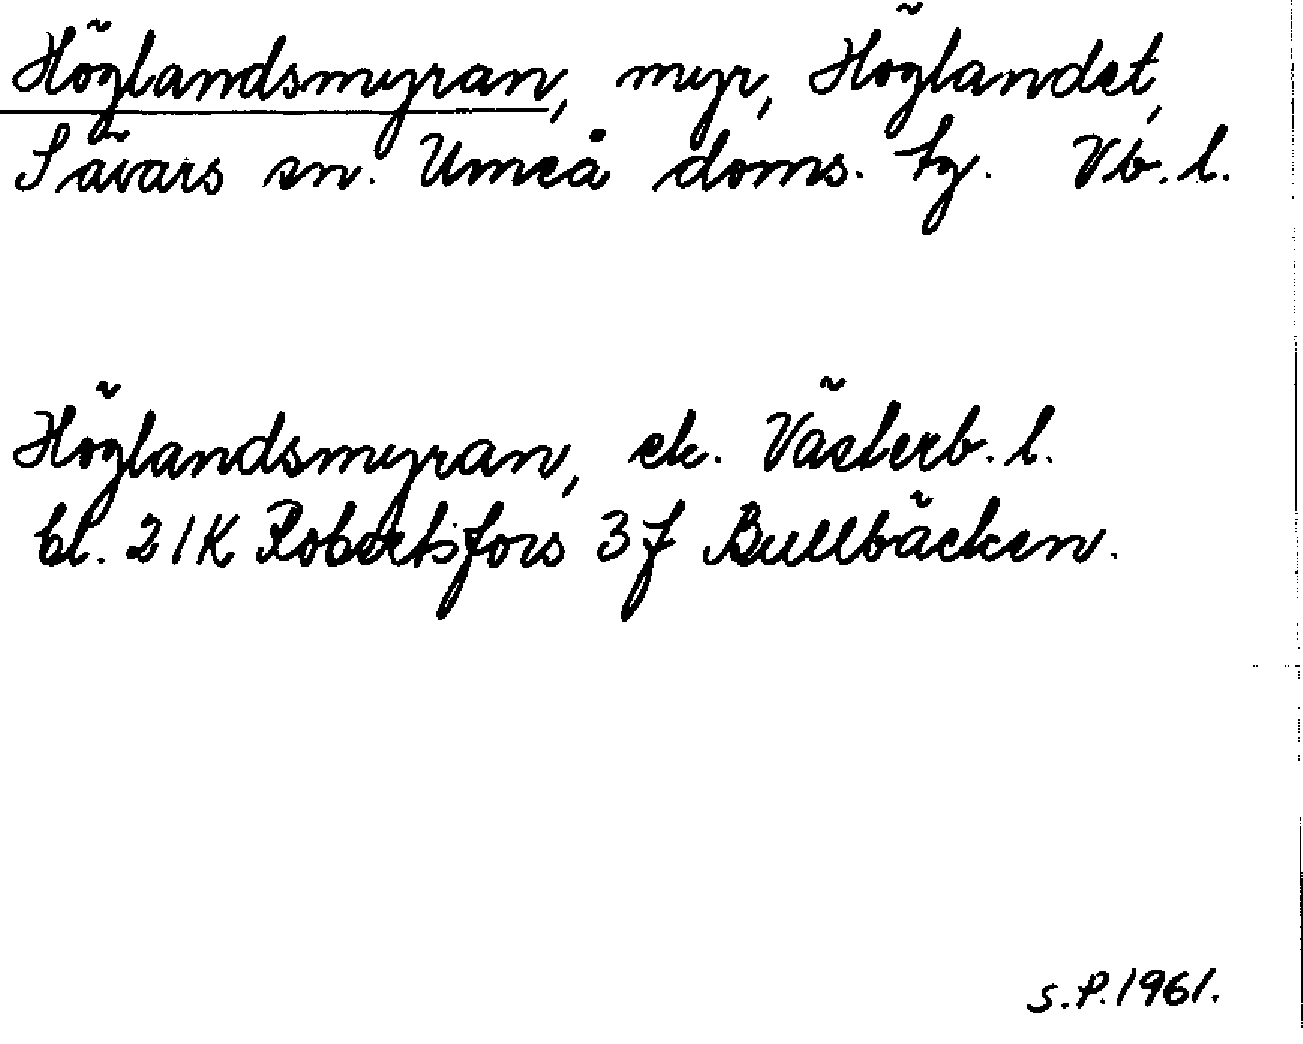 Höglandsmyran, myr, Höglandet,
Sävars sn. Umeå doms. tg. Vb. l.
Höglandsmyran, ek. Västerb. l.
bl. 21K Robertsfors 3f Bullbäcken.
S.P. 1961.